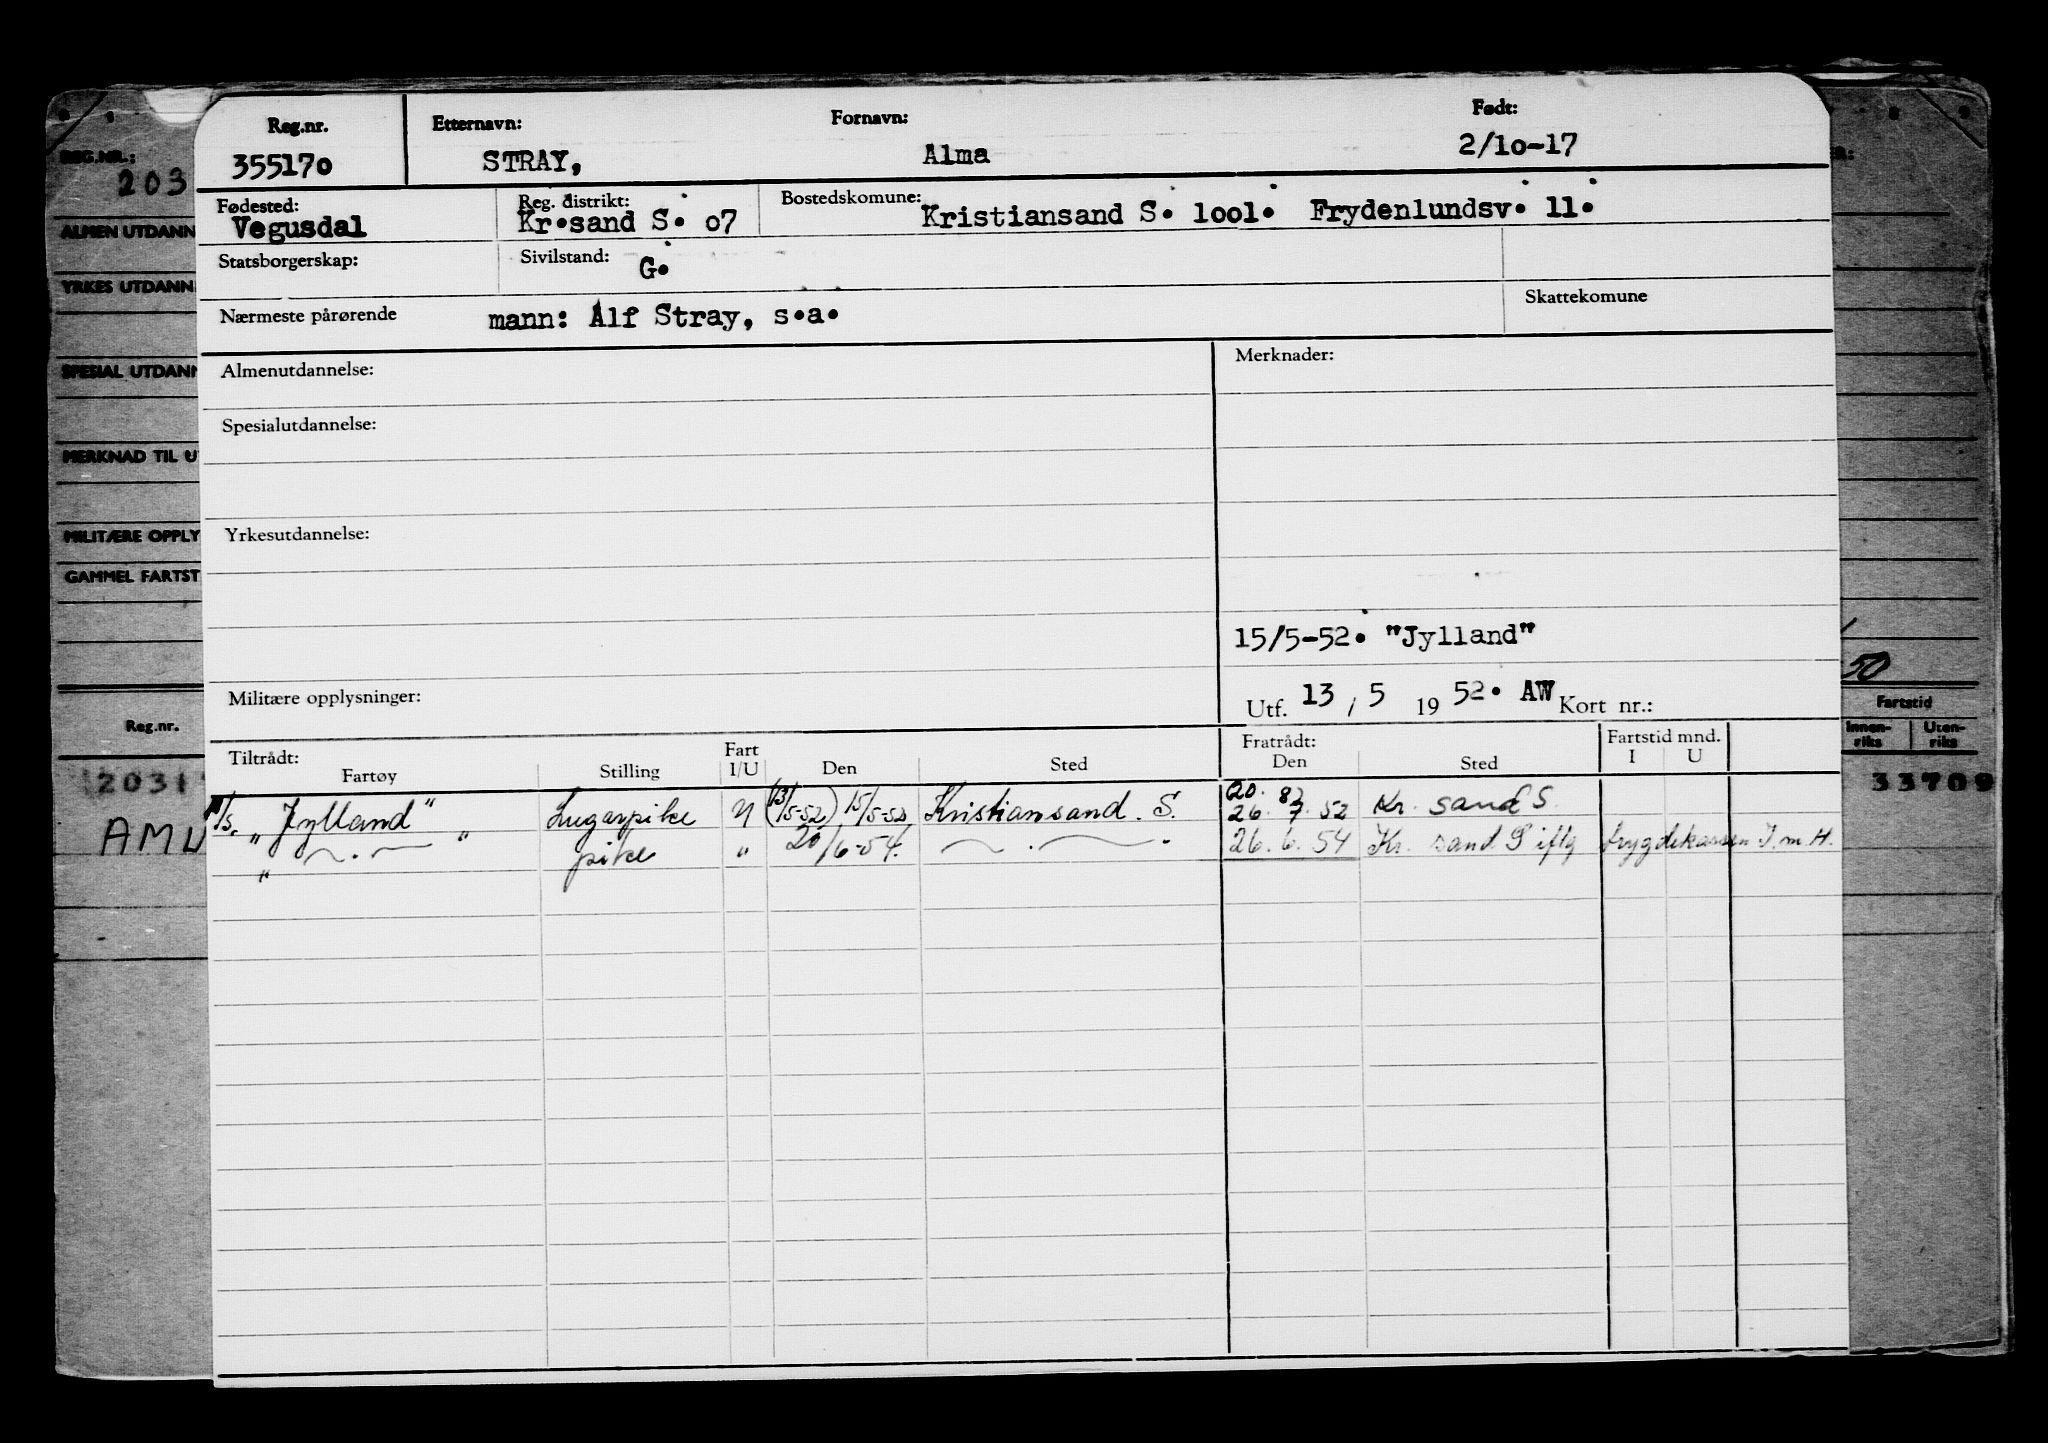 Reg.nr. Etternavn: Fornavn: Født:
35517o STRAY, Alma 2/1o-17
Fødested: Reg. distrikt: Bostedskomune:
Vegusdal Kr.sand S. o7 Kristiansand S. 1oo1. Frydenlundsv. 11.
Statsborgerskap: Sivilstand: G.
Nærmeste pårørende mann: Alf Stray, s.a. Skattekomune
Almenutdannelse: Merknader:
Spesialutdannelse:
Yrkesutdannelse:
15/5-52. "Jylland"
Militære opplysninger: Utf. 13 / 5 19 52. AW Kort nr.:
Tiltrådt: Fart Fratrådt: Fartstid mnd.
Fartøy Stilling I/U Den Sted Den Sted I U
"Jylland" Lugarpike U (13/5-52) 15/5-52 Kristiansand. S. 20. 8 26. 7. 52 Kr. sand S.
" — . — " pike " 20/6-54. — . — 26. 6. 54 Kr. sand S iflg trygdekassen I.m.H.
"
REG.NR.:
203
ALMEN UTDANN
YRKES UTDANN
SPESIAL UTDANN
MERKNAD TIL U
MILITÆRE OPPLY
GAMMEL FARTST
50
Reg.nr. Fartstid
Innen-riks Uten-riks
2031 33709